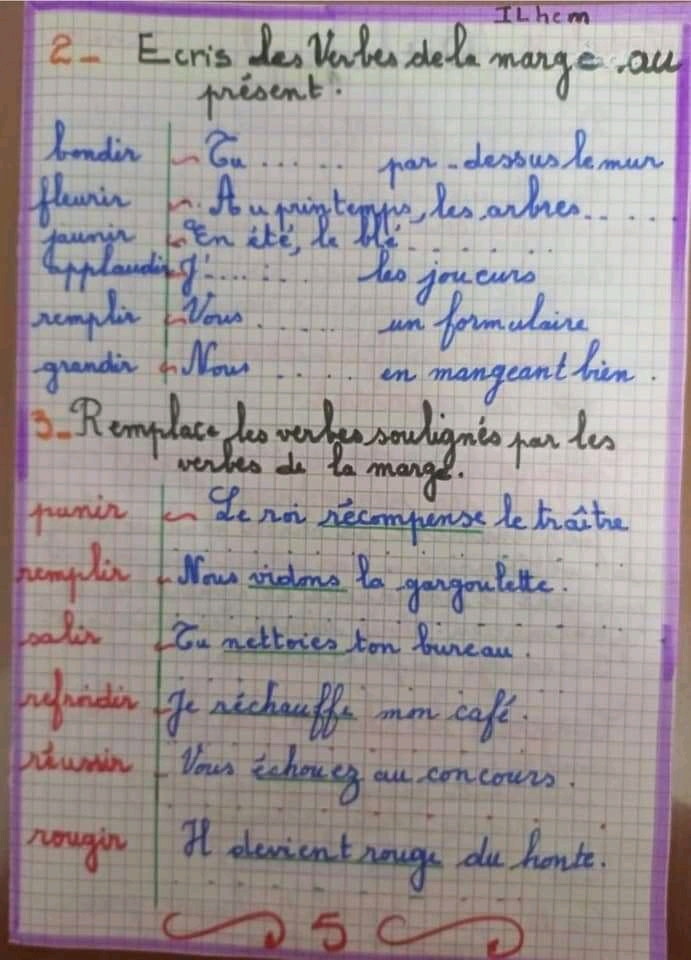 ILhem
2- Ecris les Verbes de la marge .au
présent.
bondir - Tu ...... par-dessus le mur
fleurir - Au printemps, les arbres.....
jaunir - En été, le blé.......
applaudir - J'...... les joueurs
remplir - Vous ...... un formulaire
grandir - Nous ..... en mangeant bien.
3- Remplace les verbes soulignés par les
verbes de la marge.
punir - Le roi récompense le traître
remplir - Nous vidons la gargoulette.
salir - Tu nettoies ton bureau.
refroidir - Je réchauffe mon café.
réussir - Vous échouez au concours.
rougir Il devient rouge du honte.
5